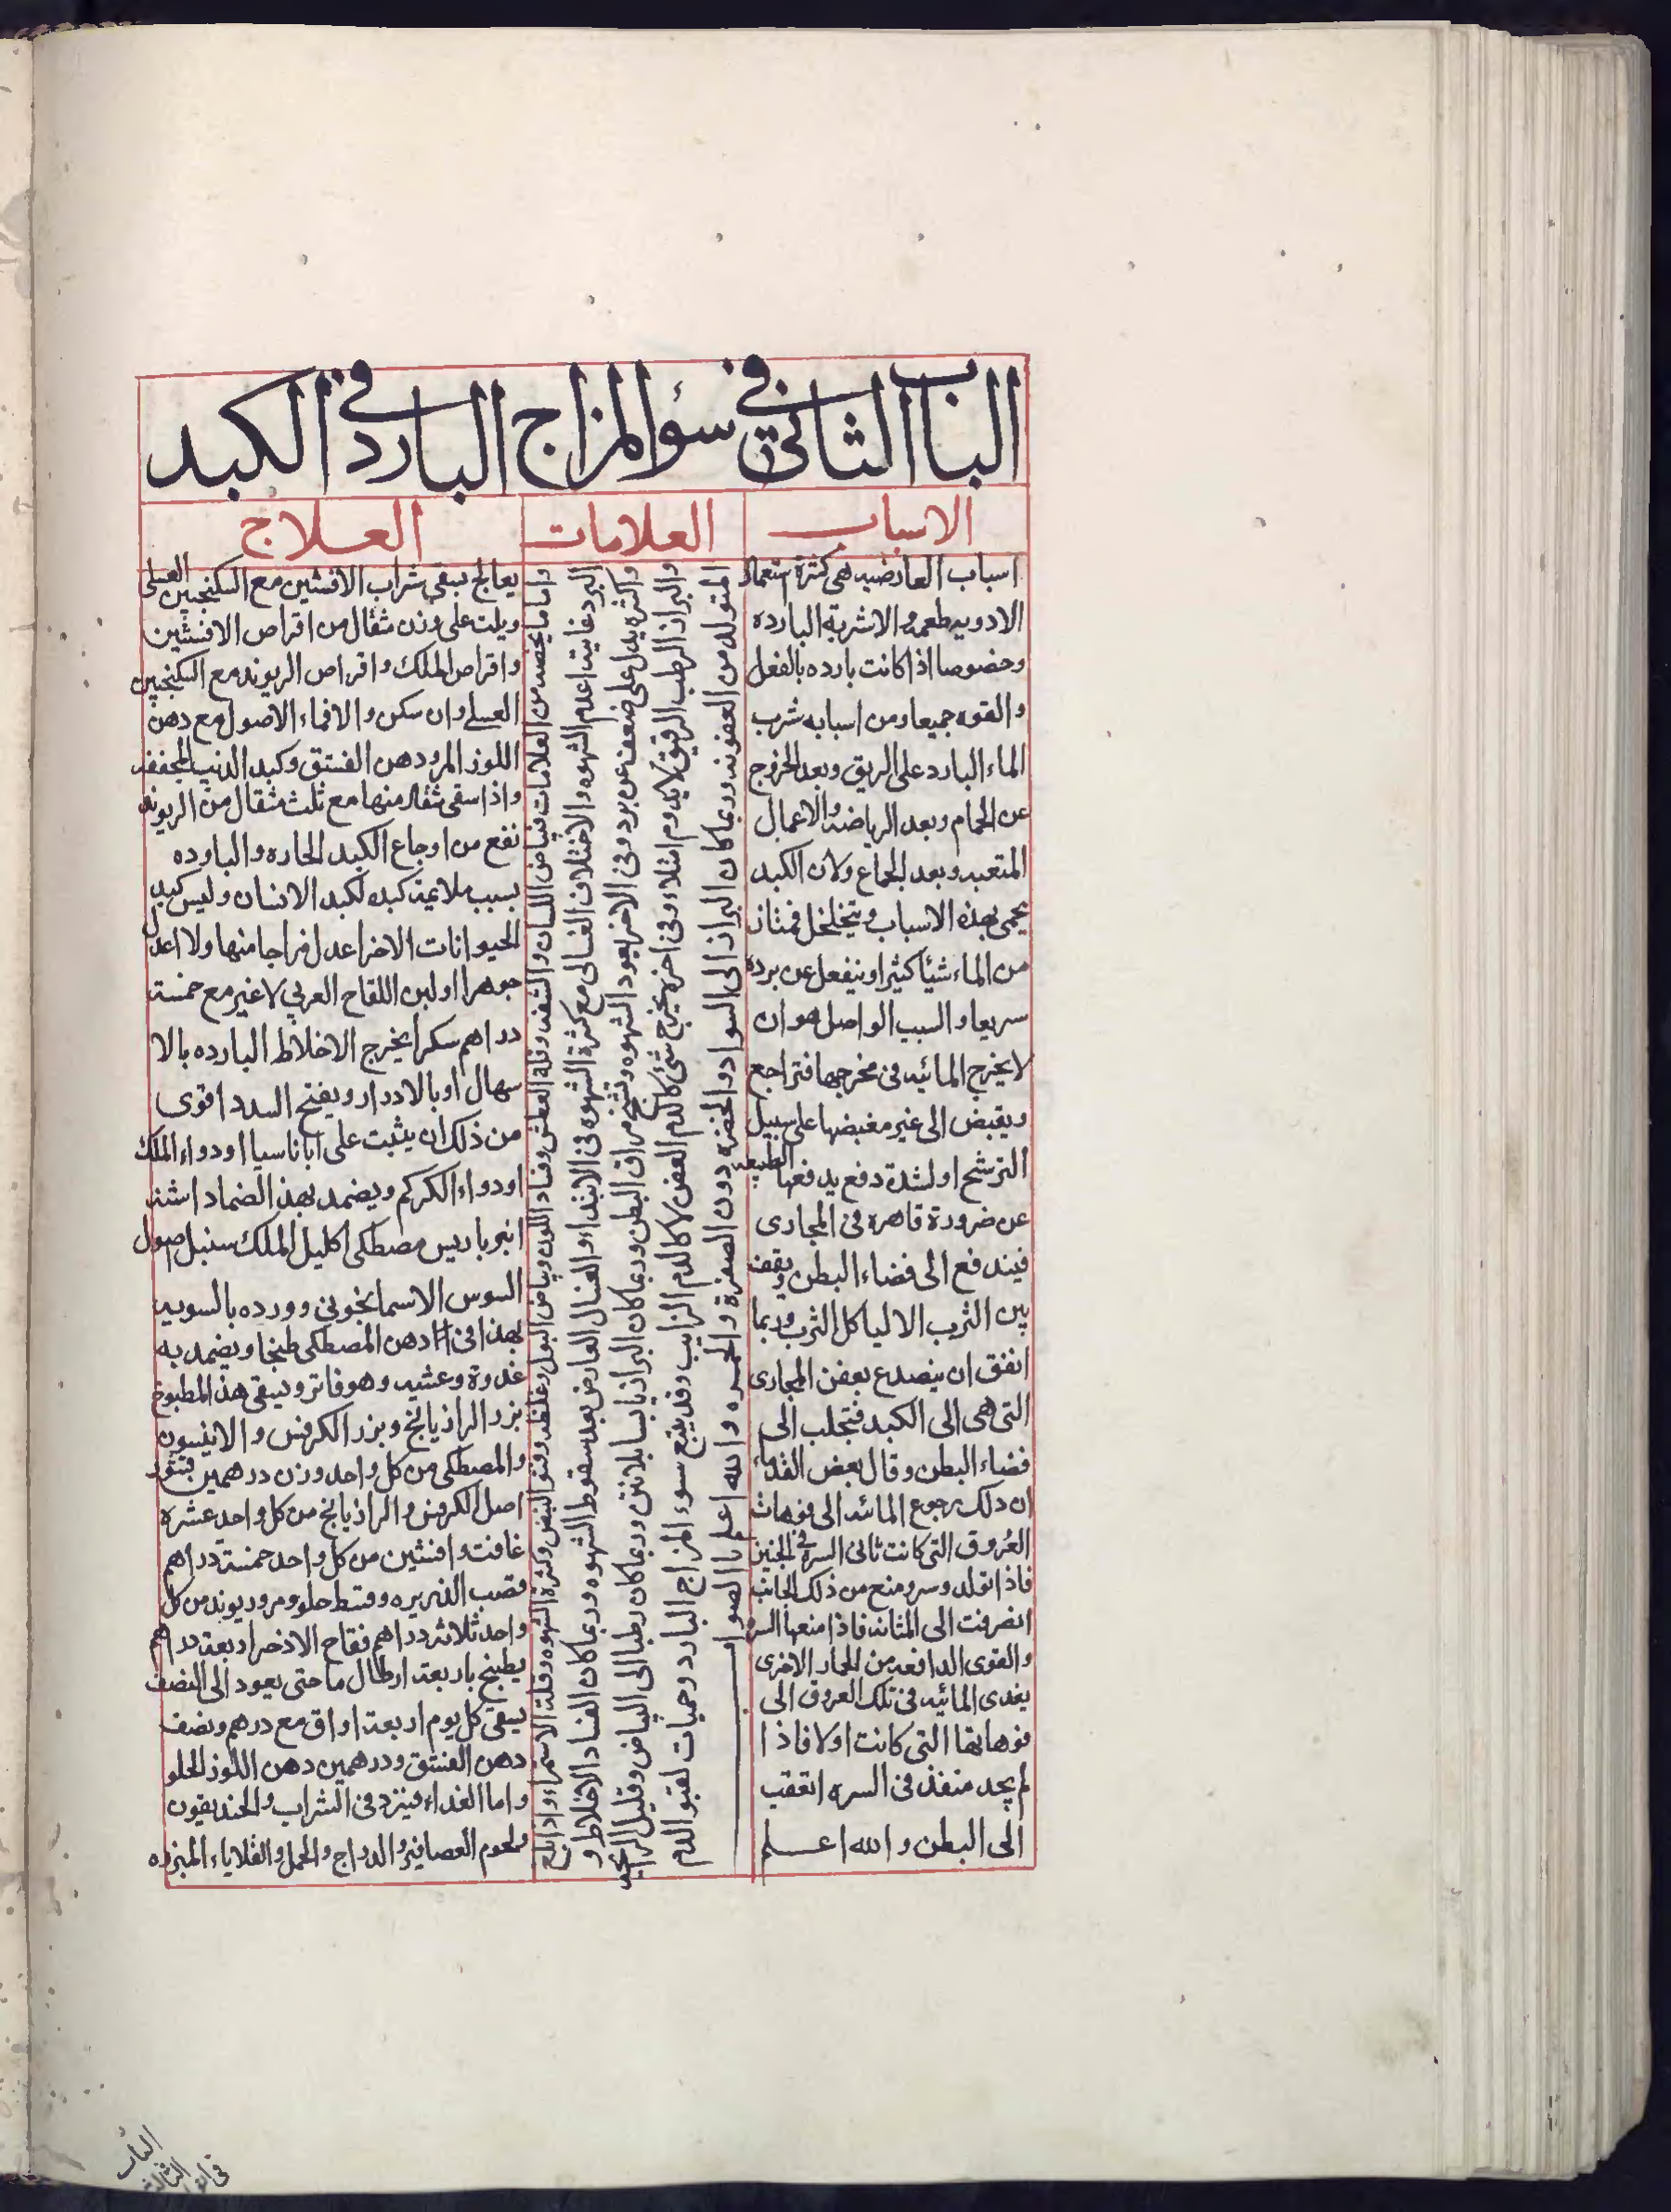 الباب الثاني في سؤ المزاج البارد في الكبد
الاسباب
العلامات
العلاج
اسباب العارضيه هي كثرة استعمال
الادويه طعمه والاشربة البارده
وخصوصا اذا كانت بارده بالفعل
والقوه جميعا ومن اسبابه شرب
الماء البارد على الريق وبعد الخروج
عن الحمام وبعد الرياضة والاعمال
المتعبه وبعد الجماع ولان الكبد
يحمى بهذه الاسباب ويتخلخل فمتاز
من الماء شيأ كثيرا وينفعل عن برده
سريعا والسبب الواصل هو ان
لا يخرج المائيه في مخرجها فتراجع
ويقبض الى غير مغبضها على سبيل
الترشح او لشدة دفع يدفعها الطبيعه
عن ضرورة قاهره في المجارى
فيندفع الى فضاء البطن ويقف
بين الثرب الا لياكل الثرب وربما
اتفق ان ينصدع بعض المجارى
التى هى الى الكبد فتجلب الى
فضاء البطن وقال بعض القدماء
ان ذلك رجوع المائيه الى فوهات
العروق التى كانت تاتى السره في الجنين
فاذا تولد وسر ومنع من ذلك الجانب
انصرفت الى المثانه فاذا منعها السر
والقوى الدافعه من المجار الاخرى
يغدى المائيه في تلك العروق الى
فوهاتها التى كانت اولا فاذا
لم يجد منفذ في السره اتعقب
الى البطن والله اعلم
واما ما يخصه من العلامات فبياض اللسان والشفه وقلة العطش وفساد اللون وبياض البول وغلظه وفتو النبض وكثرة الشهوه وقلة الاستمراء واذا بلغ
البرد غايته اعدم الشهوه والاختلاف الغسالى مع كثرة الشهوه في الابتداء والغسال العارض بعد سقوط الشهوه وربما كان الفساد الاخلاط و
واكثره يدل على ضعف عن برد وفى الاخر يعود الشهوه وتشنج مراق البطن وربما كان البراز يابسا بلا نتن وربما كان رطبا الى البياض وقليل الرائحه
والبراز الرطب الرقيق لا يدوم امتلاء وفى اخره يخرج شئ كالدم العفن لا كالدم الزايب وقد يتبع سوء المزاج البارد وحميات لقبو الدم
المتولد من العفونه وربما كان البراز الى السواد والخضره دون الصفره والحمره والله اعلم بالصواب
يعالج بسقى شراب الافسنتين مع السكنجبين العسلى
ويلت على وزن مثقال من اقراص الافسنتين
واقراص الملك واقراص الريوند مع السكنجبين
العسلى وان سكن والا فماء الاصول مع دهن
اللوز المر ودهن الفستق وكبد الذيب المجفف
واذا سقى مثقال منها مع ثلث مثقال من الريوند
نفع من اوجاع الكبد الحاره والبارده
بسبب ملايمة كبده لكبد الانسان وليس كبد
الحيوانات الاخر اعدل مزاجا منها ولا اعدل
جوهرا او لبن اللقاح العربي لا غير مع خمسة
دراهم سكر يخرج الاخلاط البارده بالا
سهال او بالادرار ويفتح السدد اقوى
من ذلك ان يثبت على اياناسيا او دواء الملك
او دواء الكركم ويضمد بهذا الضماد اشنه
انبرباريس مصطكى اكليل الملك سنبل اصول
السوس الاسمانجونى وورده بالسويه
بهذا فى دهن المصطكى طبخا ويضمد به
غدوة وعشيه وهو فاتر ويسقى هذا المطبوخ
بزر الرازيانج وبزر الكرفس والانيسون
والمصطكى من كل واحد وزن درهمين قشور
اصل الكرفس والرازيانج من كل واحد عشره
غافت وافسنتين من كل واحد خمسة دراهم
قصب الذريره وقسط حلو ومر وريوند من كل
واحد ثلاثة دراهم فقاح الاذخر اربعة دراهم
يطبخ باربعة ارطال ما حتى يعود الى النصف
يسقى كل يوم اربعة اواق مع درهم ونصف
دهن الفستق ودرهمين دهن اللوز الحلو
واما الغداء فيزد في الشراب والخنديقون
ولحوم العصافير والدراج والحمل والقلاياء المبزره
الباب
الثالث